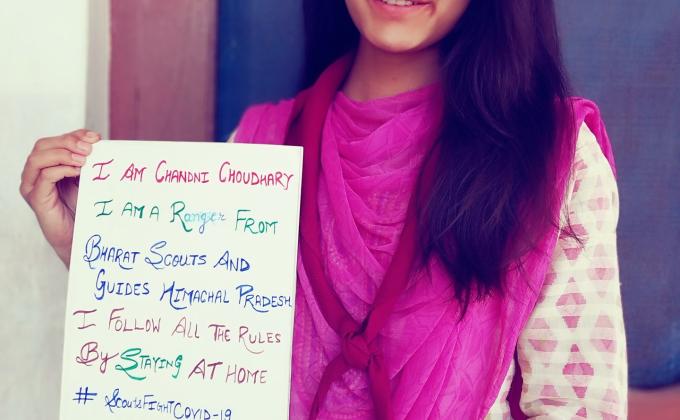 I AM CHANDNI CHOUDHARY
I AM A Ranger FROM
BHARAT SCOUTS AND
GUIDES HIMACHAL PRADESH
I FOLLOW ALL THE RULES
By STAYING AT HOME
# ScoutsFIGHTCOVID-19